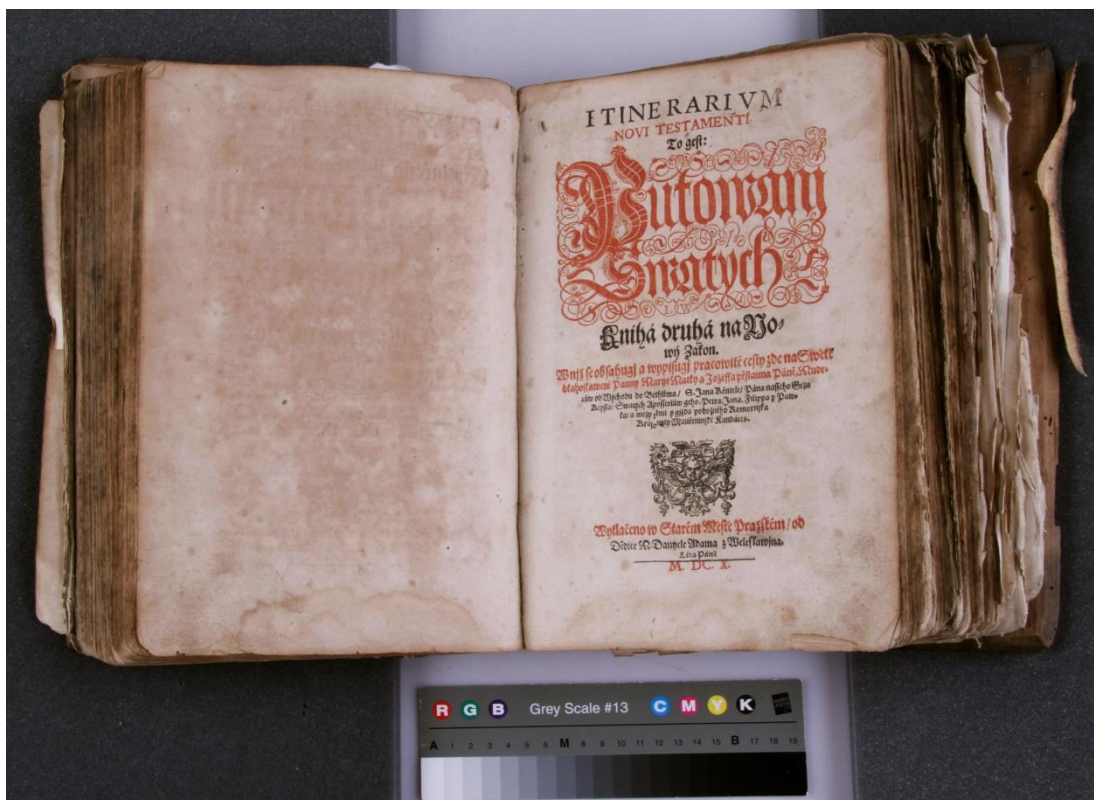 ITINERARIVM
NOVI TESTAMENTI.
To gest:
Putowanij
Swatych
Knihá druhá na No-
wý Zákon.
W níž se obsahugj a wypisugj pracowité cesty zde na Swětě
blahoslawené Panny Marye Matky a Jozeffa pěstauna Páně, Mudr-
cůw od Wýchodu do Bethléma / S. Jana Křtitele / Pána nasseho Gežu
Krysta / Swatých Aposstolůw geho, Petra, Jana, Filippa y Paw-
la: a mezy nimi y gjzda pobožného Komornjka
Králowny Mauřenjnské Kandáces.
Wytlačeno w Starém Městě Pražském / od
Dědice M. Danyele Adama z Weleslawjna.
Léta Páně
M. DC. X.
R G B Grey Scale #13 C M Y K
A 1 2 3 4 5 6 M 8 9 10 11 12 13 14 15 B 17 18 19